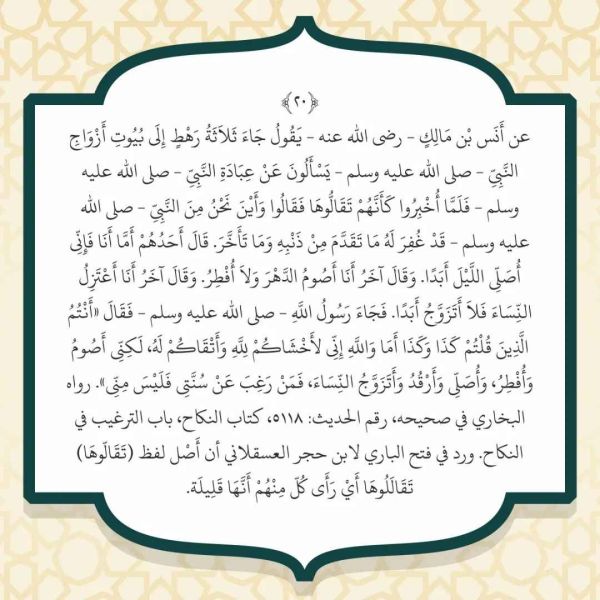 ﴿٢٠﴾
عن أَنَس بْن مَالِكٍ - رضى الله عنه - يَقُولُ جَاءَ ثَلاَثَةُ رَهْطٍ إِلَى بُيُوتِ أَزْوَاجِ
النَّبِيِّ - صلى الله عليه وسلم - يَسْأَلُونَ عَنْ عِبَادَةِ النَّبِيِّ - صلى الله عليه
وسلم - فَلَمَّا أُخْبِرُوا كَأَنَّهُمْ تَقَالُّوهَا فَقَالُوا وَأَيْنَ نَحْنُ مِنَ النَّبِيِّ - صلى الله
عليه وسلم - قَدْ غُفِرَ لَهُ مَا تَقَدَّمَ مِنْ ذَنْبِهِ وَمَا تَأَخَّرَ. قَالَ أَحَدُهُمْ أَمَّا أَنَا فَإِنِّى
أُصَلِّى اللَّيْلَ أَبَدًا. وَقَالَ آخَرُ أَنَا أَصُومُ الدَّهْرَ وَلاَ أُفْطِرُ. وَقَالَ آخَرُ أَنَا أَعْتَزِلُ
النِّسَاءَ فَلاَ أَتَزَوَّجُ أَبَدًا. فَجَاءَ رَسُولُ اللَّهِ - صلى الله عليه وسلم - فَقَالَ «أَنْتُمُ
الَّذِينَ قُلْتُمْ كَذَا وَكَذَا أَمَا وَاللَّهِ إِنِّى لأَخْشَاكُمْ لِلَّهِ وَأَتْقَاكُمْ لَهُ، لَكِنِّى أَصُومُ
وَأُفْطِرُ، وَأُصَلِّى وَأَرْقُدُ وَأَتَزَوَّجُ النِّسَاءَ، فَمَنْ رَغِبَ عَنْ سُنَّتِى فَلَيْسَ مِنِّى». رواه
البخاري في صحيحه، رقم الحديث: ٥١١٨، كتاب النكاح، باب الترغيب في
النكاح. ورد في فتح الباري لابن حجر العسقلاني أن أَصْل لفظ (تَقَالّوهَا)
تَقَالَلُوهَا أَيْ رَأَى كُلّ مِنْهُمْ أَنَّهَا قَلِيلَة.